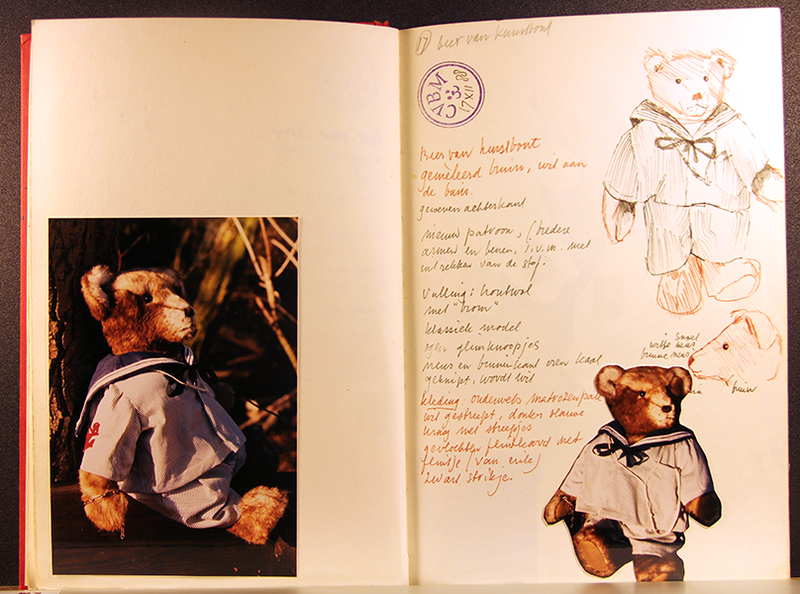 17 beer van kunstbont
CVBM
17 XII 88
Beer van kunstbont
gemêleerd bruin, wit aan
de basis.
geweven achterkant
nieuw patroon, (bredere
armen en benen, i.v.m. niet
uitrekken van de stof.
Vulling: houtwol
met "brom"
klassiek model
ogen glimknoopjes
neus en binnenkant oren kaal
geknipt, wordt wit
snuit
witte neus
bruine neus
bruin
kleding: onderweg matrozenpak
wit gestreept, donker blauwe
kraag met streepjes
gevlochten fluitkoord met
fluitje (van Erik)
zwart strikje.